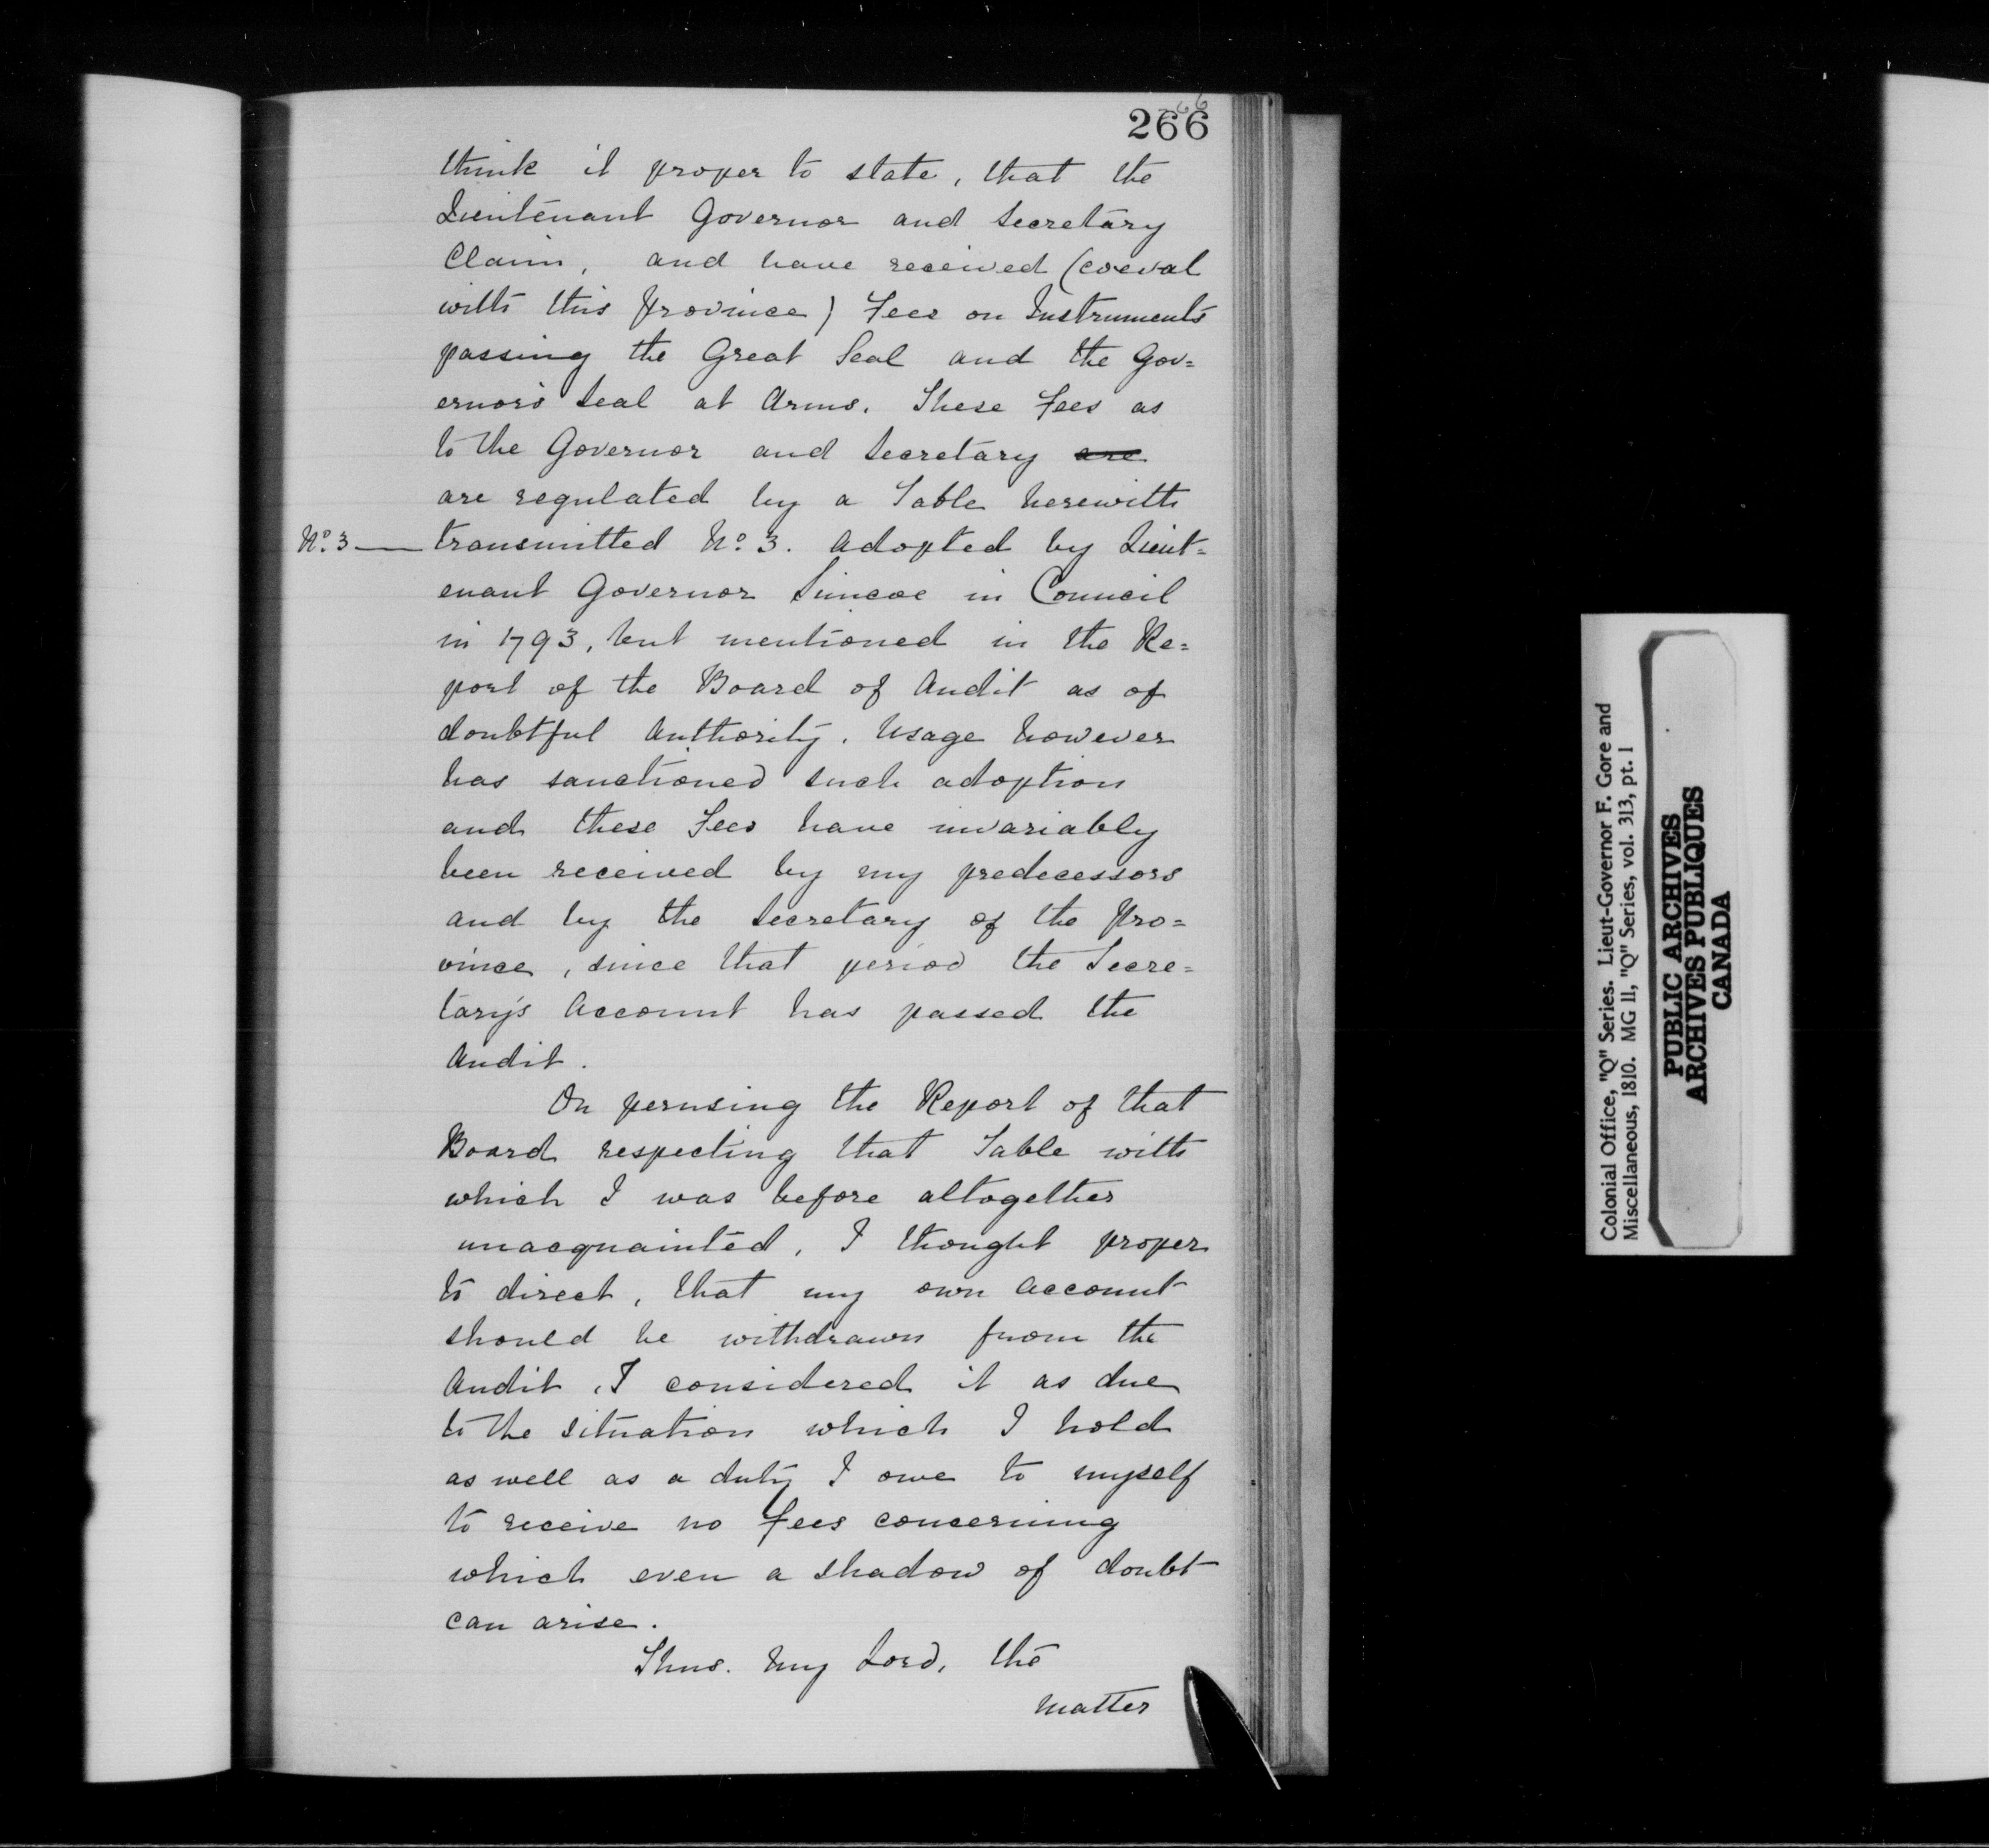 266
266
think it proper to state, that the
Lieutenant Governor and Secretary
Claim, and have received (coeval
with this Province) Fees on Instruments
passing the Great Seal and the Gov=
ernor's Seal at Arms. These Fees as
to the Governor and Secretary are
are regulated by a Table herewith
No. 3 — transmitted No. 3. adopted by Lieut=
enant Governor Simcoe in Council
in 1793, but mentioned in the Re=
port of the Board of Audit as of
doubtful Authority. Usage however
has sanctioned such adoption
and these Fees have invariably
been received by my predecessors
and by the Secretary of the Pro=
vince, since that period the Secre=
tary's Account has passed the
Audit.
On perusing the Report of that
Board respecting that Table with
which I was before altogether
unacquainted, I thought proper
to direct, that my own Account
should be withdrawn from the
Audit, I considered it as due
to the situation which I hold
as well as a duty I owe to myself
to receive no Fees concerning
which even a shadow of doubt
can arise.
Thus. My Lord, the
matter
Colonial Office, "Q" Series. Lieut-Governor F. Gore and
Miscellaneous, 1810. MG 11, "Q" Series, vol. 313, pt. 1
PUBLIC ARCHIVES
ARCHIVES PUBLIQUES
CANADA